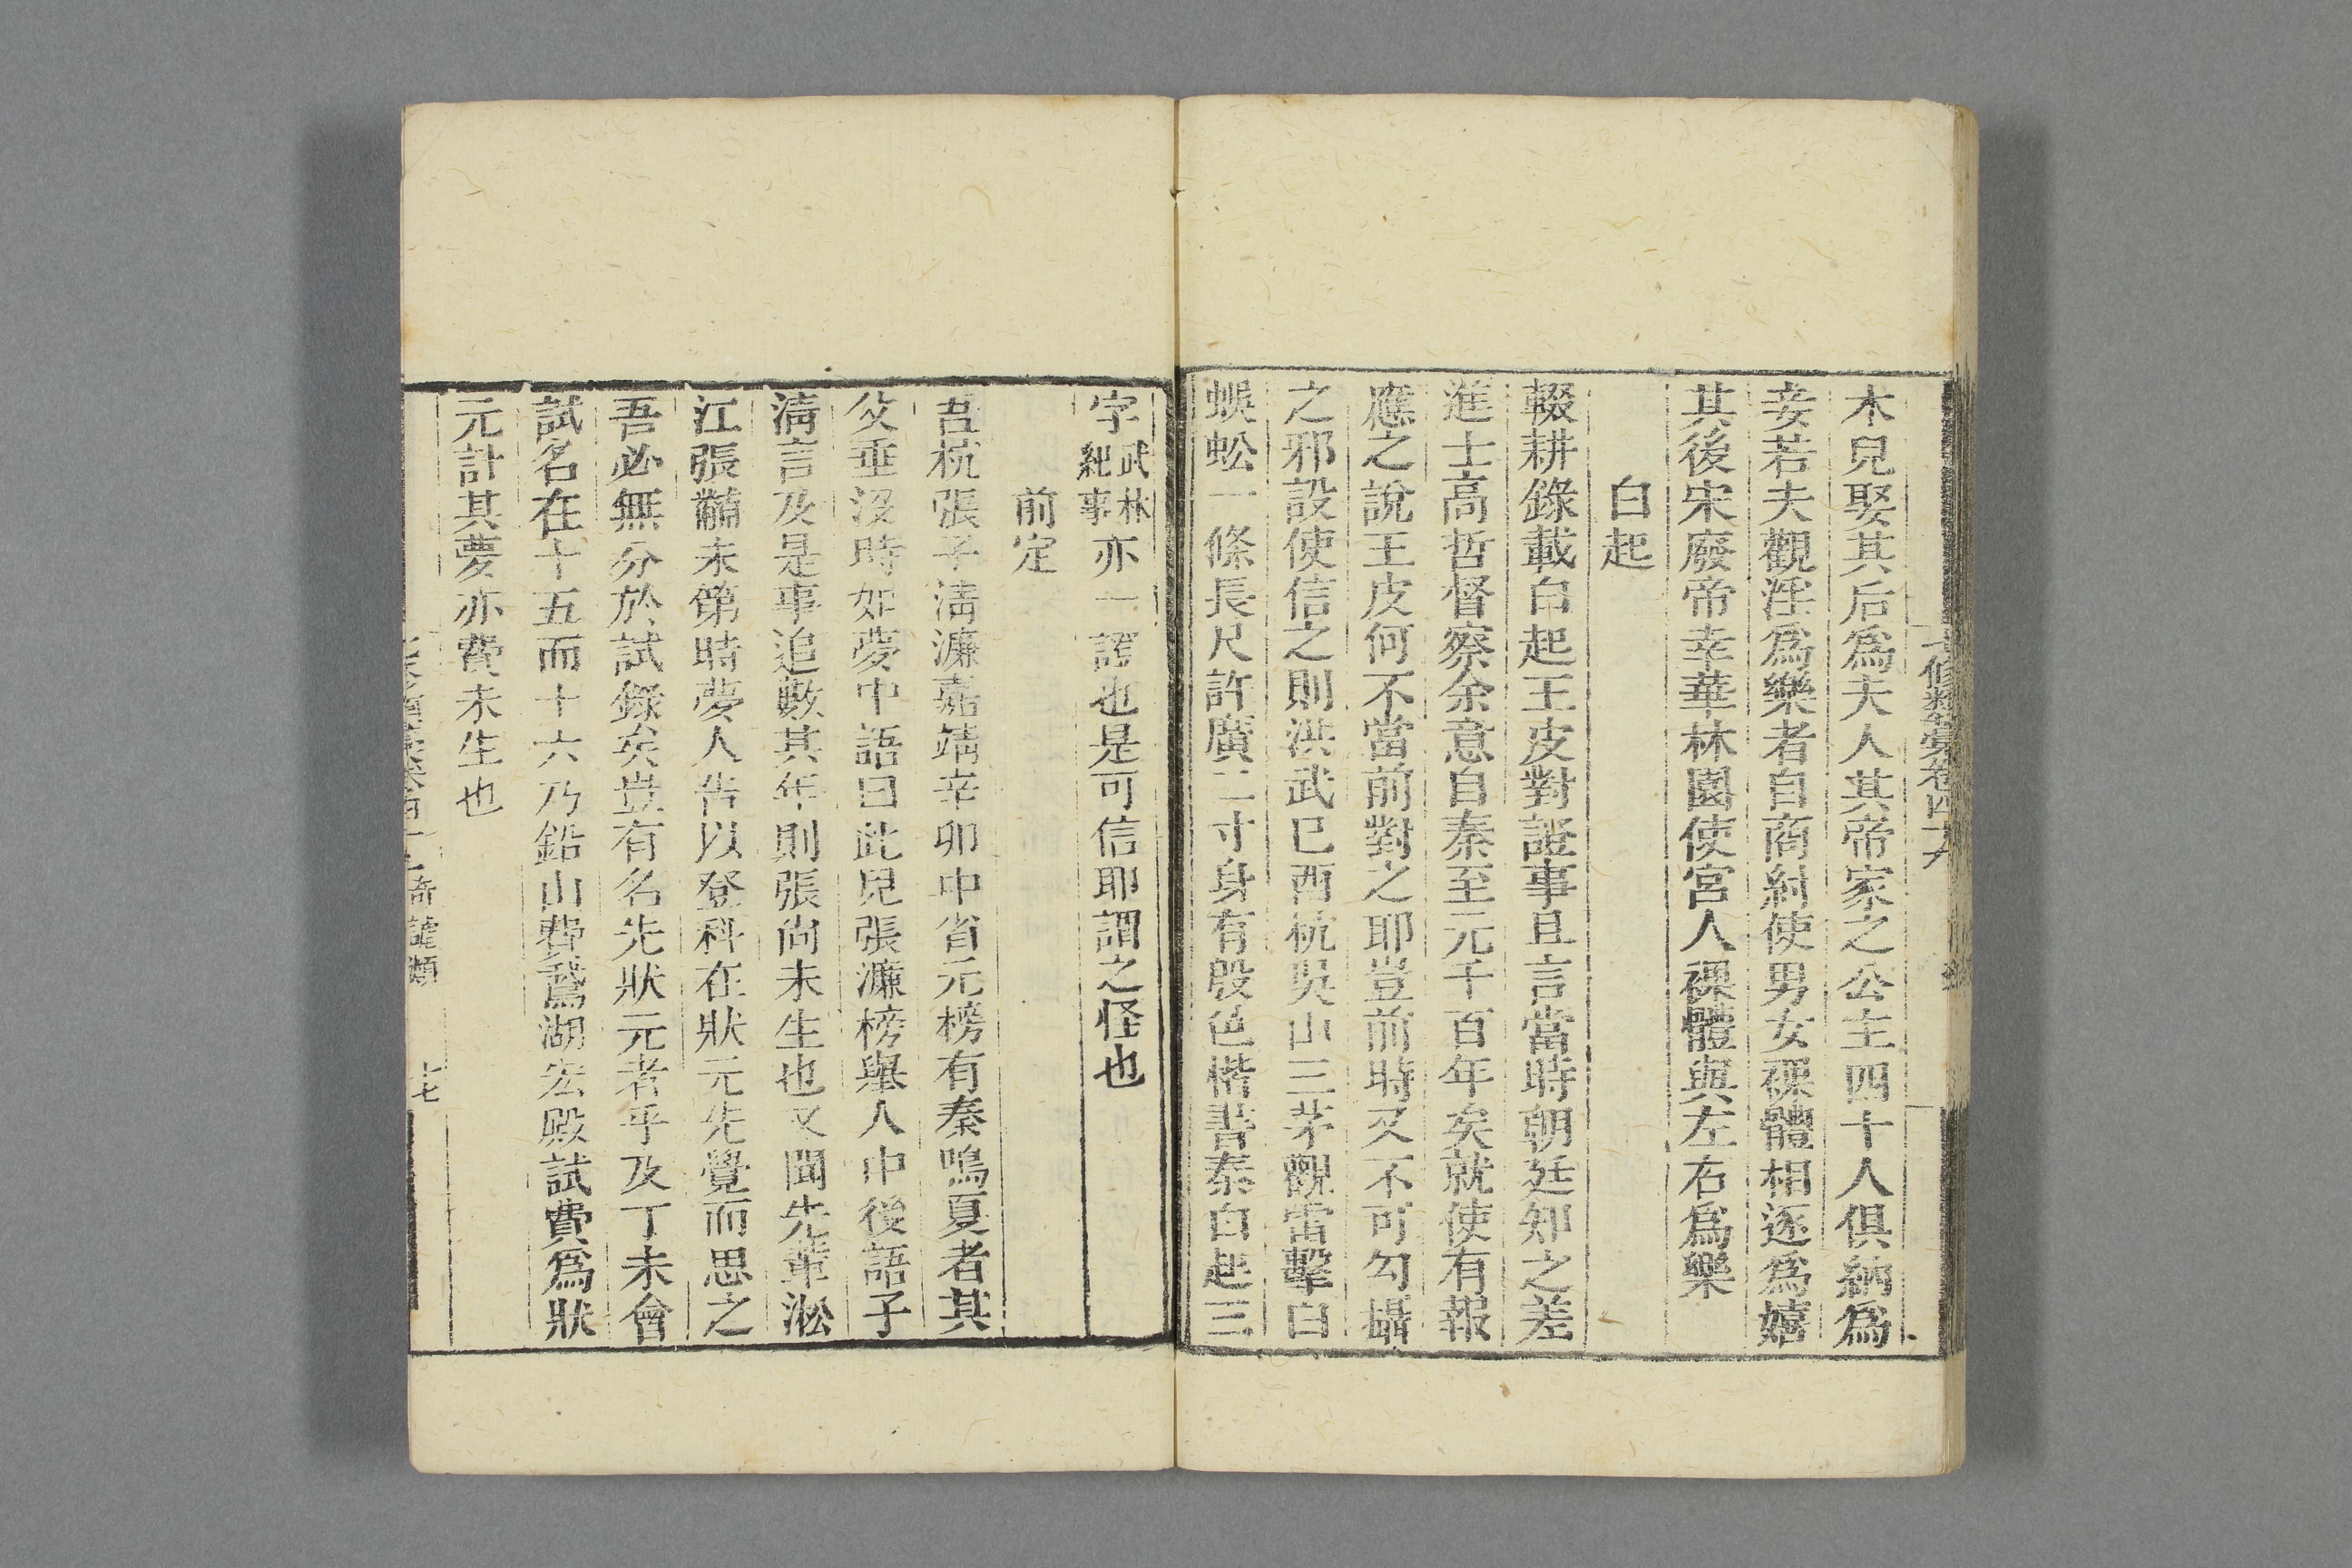 七修類藁卷四十九
木兒娶其后爲夫人其帝家之公主四十人俱納爲
妾若夫觀淫爲樂者自商紂使男女裸體相逐爲嬉
其後宋廢帝幸華林園使宮人裸體與左右爲樂
白起
輟耕錄載白起王皮對證事且言當時朝廷知之差
進士高哲督察余意自秦至元千百年矣就使有報
應之說王皮何不當前對之耶豈前時又不可勾攝
之邪設使信之則洪武已酉杭吳山三茅觀雷擊白
蜈蚣一條長尺許廣二寸身有殷色楷書秦白起三
字武林紀事亦一證也是可信耶謂之怪也
前定
吾杭張子清濂嘉靖辛卯中省元榜有秦鳴夏者其
父垂沒時如夢中語曰此兒張濂榜舉人中後語子
清言及是事追數其年則張尚未生也又聞先輩淞
江張黼未第時夢人告以登科在狀元先覺而思之
吾必無分於試錄矣豈有名先狀元者乎及丁未會
試名在十五而十六乃鉛山費鵞湖宏殿試費爲狀
元計其夢亦費未生也
奇謔類
十七